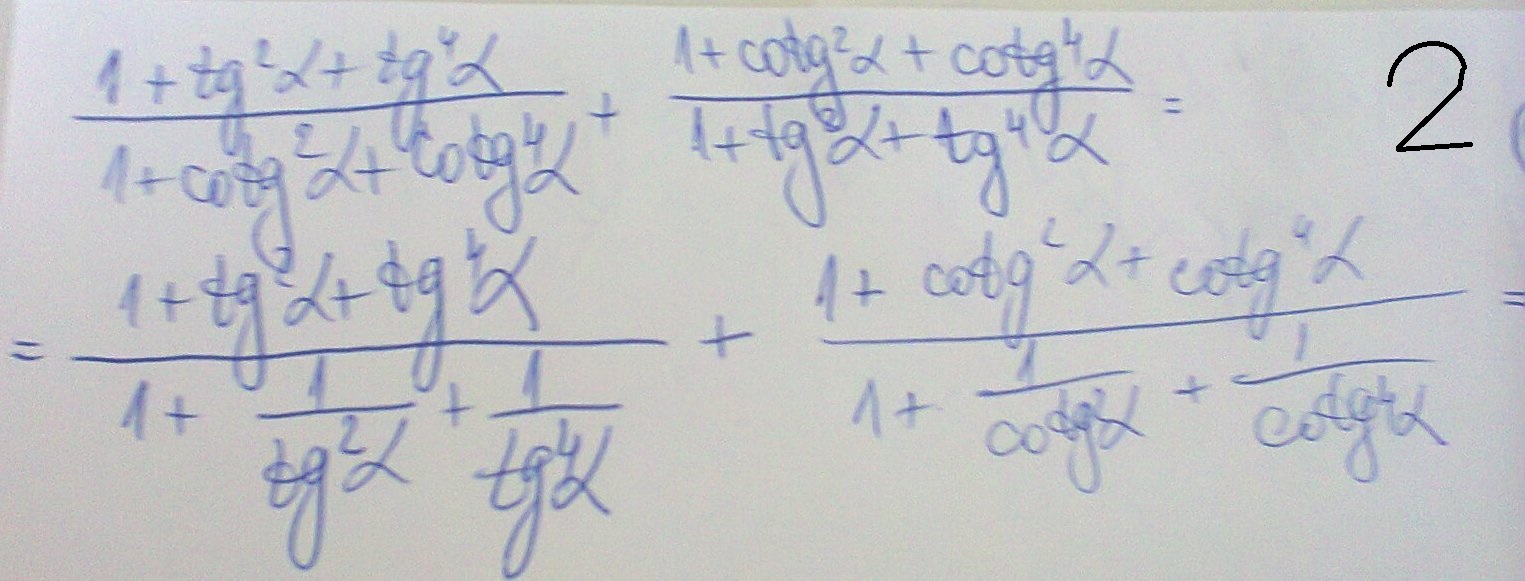 (1 + tg²α + tg⁴α)/(1 + cotg²α + cotg⁴α) + (1 + cotg²α + cotg⁴α)/(1 + tg²α + tg⁴α) = 2
= (1 + tg²α + tg⁴α)/(1 + 1/tg²α + 1/tg⁴α) + (1 + cotg²α + cotg⁴α)/(1 + 1/cotg²α + 1/cotg⁴α) =